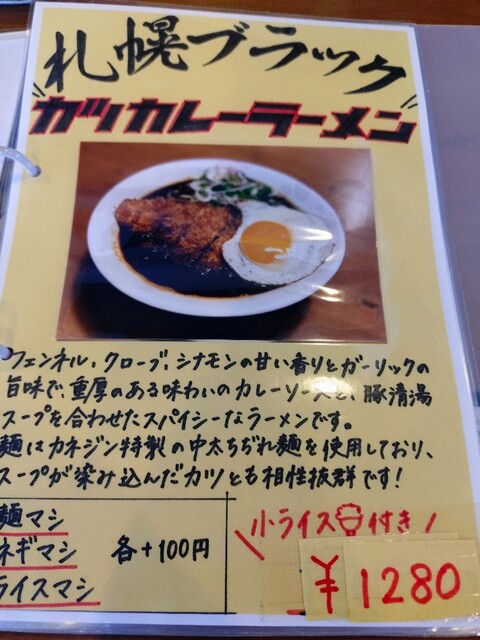 札幌ブラック
"カツカレーラーメン"
フェンネル、クローブ、シナモンの甘い香りとガーリックの
旨味で、重厚のある味わいのカレーソースと、豚清湯
スープを合わせたスパイシーなラーメンです。
麺はカネジン特製の中太ちぢれ麺を使用しており、
スープが染み込んだカツとも相性抜群です!
麺マシ
ネギマシ
ライスマシ
各+100円
小ライス付き
¥1280